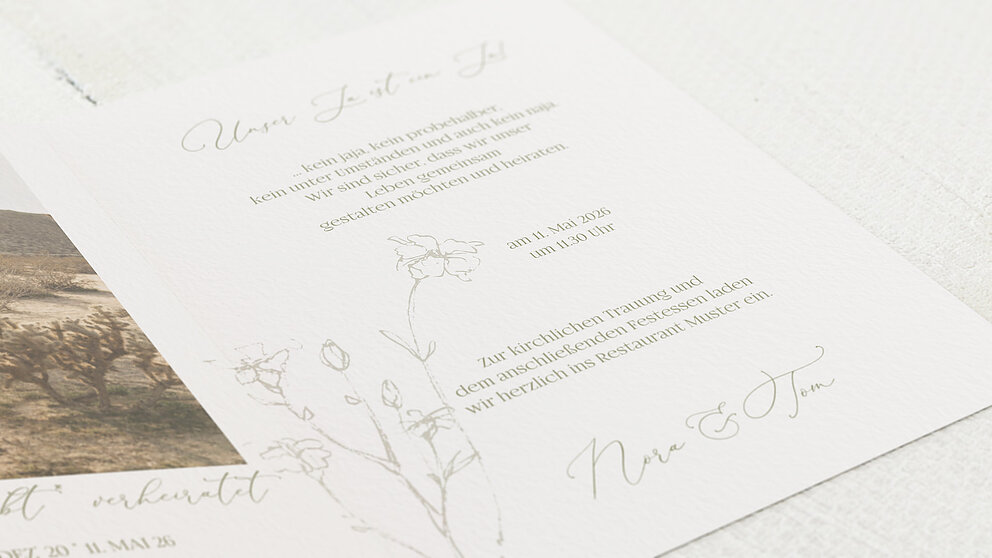 Unser Ja ist ein Ja!
... kein jaja, kein probehalber,
kein unter Umständen und auch kein naja.
Wir sind sicher, dass wir unser
Leben gemeinsam
gestalten möchten und heiraten.
am 11. Mai 2026
um 11.30 Uhr
Zur kirchlichen Trauung und
dem anschließenden Festessen laden
wir herzlich ins Restaurant Muster ein.
Nora & Tom
verheiratet
DEZ. 20 * 11. MAI 26